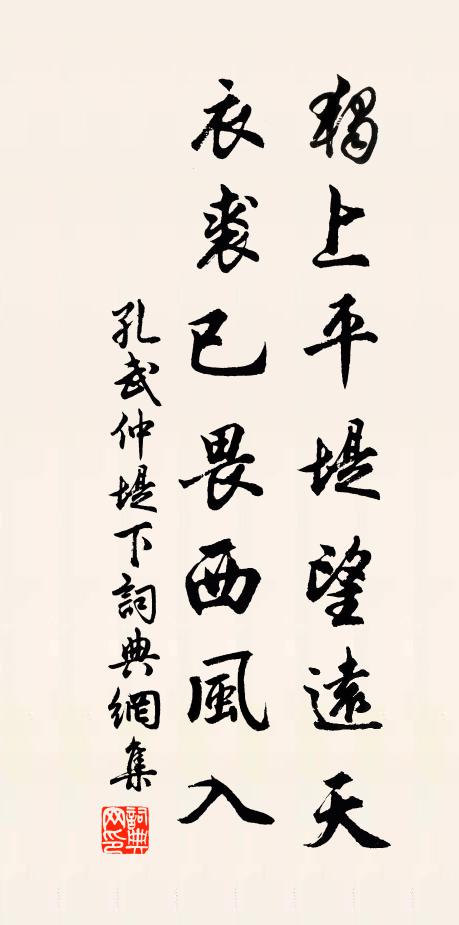 獨上平堤望遠天
衣裘已畏西風入
孔武仲堤下詞典網集
詞典網印